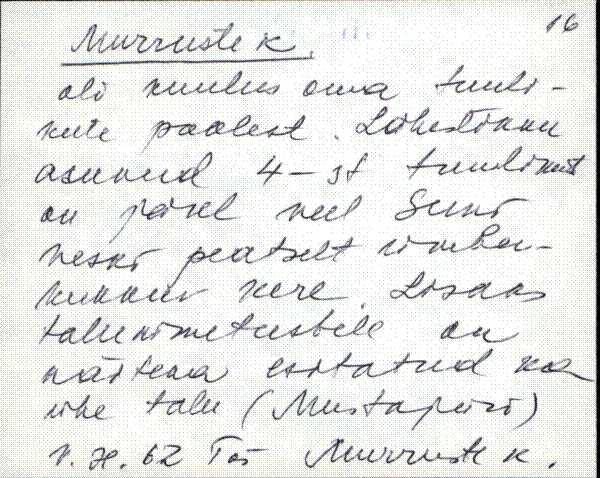 16
Murruste k.
oli kuulus oma tuuli-
kute poolest. Lähestikku
asunud 4-st tuulikust
on järel veel Suur
veski peatselt ümber-
kukkuv kere. Lisaks
talunimetustele on
näitena esitatud ka
ühe talu (Mustapüri)
V. H. 62 Murruste k.